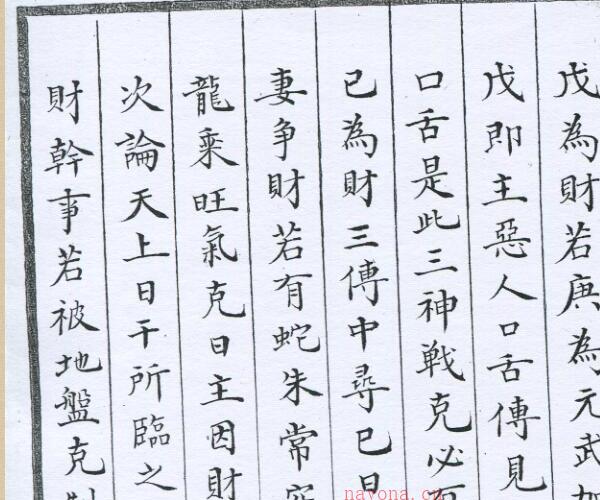 戊為財若庚為元武加
戊即主惡人口舌傳見
口舌是此三神戰克必
己為財三傳中尋巳日
妻爭財若有蛇朱常
龍乗旺氣克日主因財
次論天上日干所臨之
財幹事若被地盤克
nayona.cn